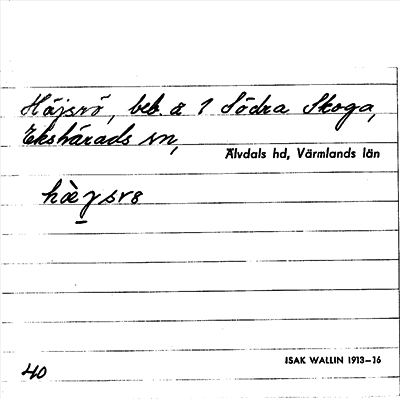 Höjsrö, beb. å 1 Södra Skoga,
Ekshärads sn,
Älvdals hd, Värmlands län
hæ̀jsrɞ
ISAK WALLIN 1913–16
40